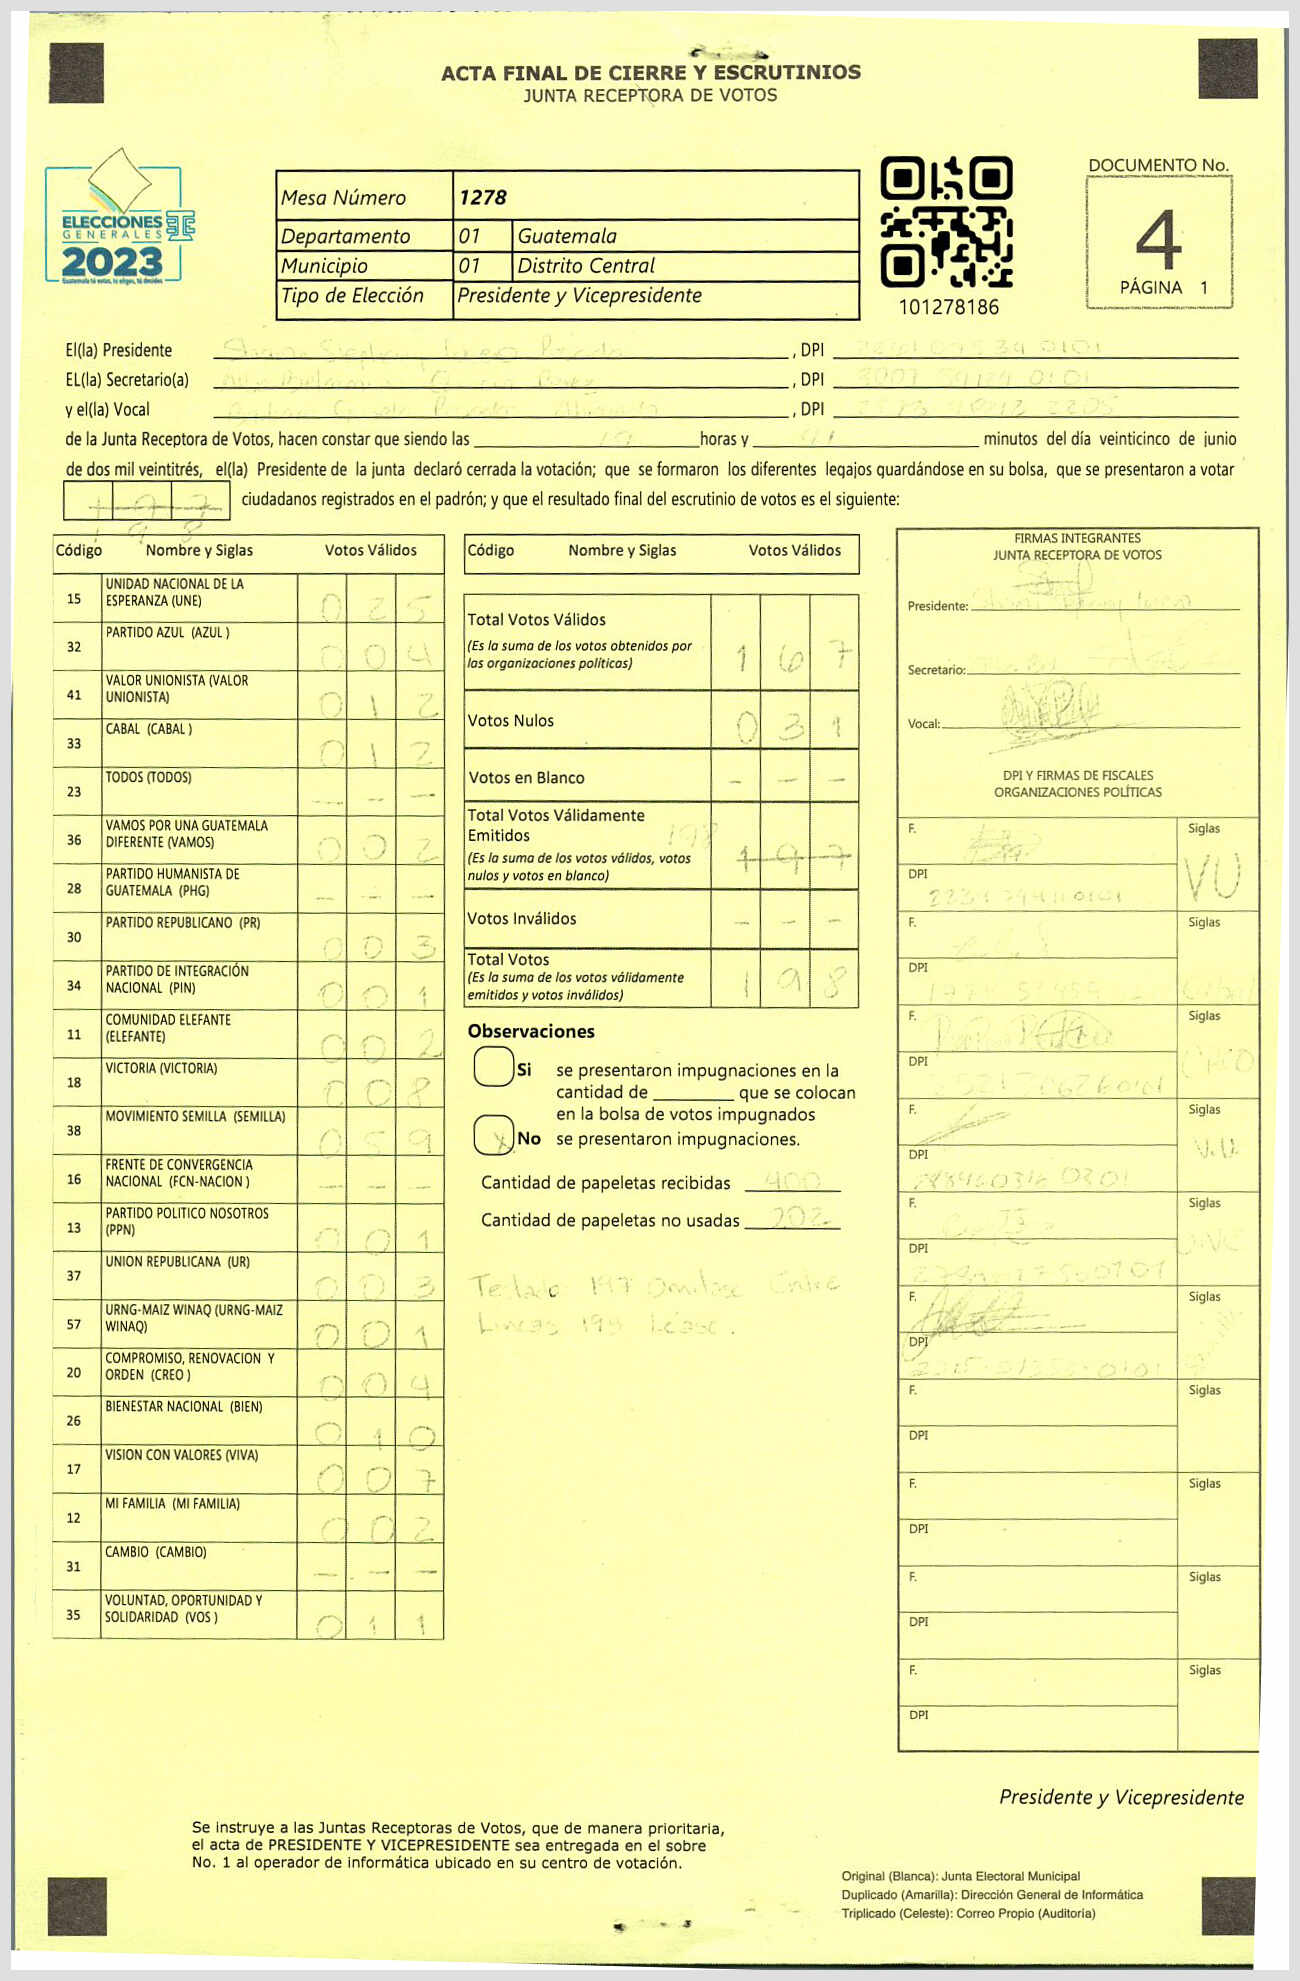 ACTA FINAL DE CIERRE Y ESCRUTINIOS
JUNTA RECEPTORA DE VOTOS
ELECCIONES
GENERALES
2023
Guatemala tú votas, tú eliges, tú decides
Mesa Número 1278
Departamento 01 Guatemala
Municipio 01 Distrito Central
Tipo de Elección Presidente y Vicepresidente
101278186
DOCUMENTO No.
4
PÁGINA 1
El(la) Presidente , DPI
EL(la) Secretario(a) , DPI
y el(la) Vocal , DPI
de la Junta Receptora de Votos, hacen constar que siendo las horas y minutos del día veinticinco de junio
de dos mil veintitrés, el(la) Presidente de la junta declaró cerrada la votación; que se formaron los diferentes legajos guardándose en su bolsa, que se presentaron a votar
197 ciudadanos registrados en el padrón; y que el resultado final del escrutinio de votos es el siguiente:
198
Código Nombre y Siglas Votos Válidos
15 UNIDAD NACIONAL DE LA ESPERANZA (UNE) 025
32 PARTIDO AZUL (AZUL ) 004
41 VALOR UNIONISTA (VALOR UNIONISTA) 012
33 CABAL (CABAL ) 012
23 TODOS (TODOS) - - -
36 VAMOS POR UNA GUATEMALA DIFERENTE (VAMOS) 002
28 PARTIDO HUMANISTA DE GUATEMALA (PHG) - - -
30 PARTIDO REPUBLICANO (PR) 003
34 PARTIDO DE INTEGRACIÓN NACIONAL (PIN) 001
11 COMUNIDAD ELEFANTE (ELEFANTE) 002
18 VICTORIA (VICTORIA) 008
38 MOVIMIENTO SEMILLA (SEMILLA) 059
16 FRENTE DE CONVERGENCIA NACIONAL (FCN-NACION ) - - -
13 PARTIDO POLITICO NOSOTROS (PPN) 001
37 UNION REPUBLICANA (UR) 003
57 URNG-MAIZ WINAQ (URNG-MAIZ WINAQ) 001
20 COMPROMISO, RENOVACION Y ORDEN (CREO ) 004
26 BIENESTAR NACIONAL (BIEN) 010
17 VISION CON VALORES (VIVA) 007
12 MI FAMILIA (MI FAMILIA) 002
31 CAMBIO (CAMBIO) - - -
35 VOLUNTAD, OPORTUNIDAD Y SOLIDARIDAD (VOS ) 011
Código Nombre y Siglas Votos Válidos
Total Votos Válidos 167
(Es la suma de los votos obtenidos por
las organizaciones políticas)
Votos Nulos 031
Votos en Blanco - - -
Total Votos Válidamente
Emitidos 198 197
(Es la suma de los votos válidos, votos
nulos y votos en blanco)
Votos Inválidos - - -
Total Votos 198
(Es la suma de los votos válidamente
emitidos y votos inválidos)
Observaciones
Si se presentaron impugnaciones en la
cantidad de que se colocan
en la bolsa de votos impugnados
X No se presentaron impugnaciones.
Cantidad de papeletas recibidas 400
Cantidad de papeletas no usadas 202
Testado 197 Omitase Entre
Lineas 198 Léase.
FIRMAS INTEGRANTES
JUNTA RECEPTORA DE VOTOS
Presidente:
Secretario:
Vocal:
DPI Y FIRMAS DE FISCALES
ORGANIZACIONES POLÍTICAS
F. Siglas
DPI VU
F. Siglas
DPI
F. Siglas
DPI
F. Siglas
DPI V.U.
F. Siglas
DPI
F. Siglas
DPI
F. Siglas
DPI
F. Siglas
DPI
F. Siglas
DPI
F. Siglas
DPI
Presidente y Vicepresidente
Se instruye a las Juntas Receptoras de Votos, que de manera prioritaria,
el acta de PRESIDENTE Y VICEPRESIDENTE sea entregada en el sobre
No. 1 al operador de informática ubicado en su centro de votación.
Original (Blanca): Junta Electoral Municipal
Duplicado (Amarilla): Dirección General de Informática
Triplicado (Celeste): Correo Propio (Auditoría)